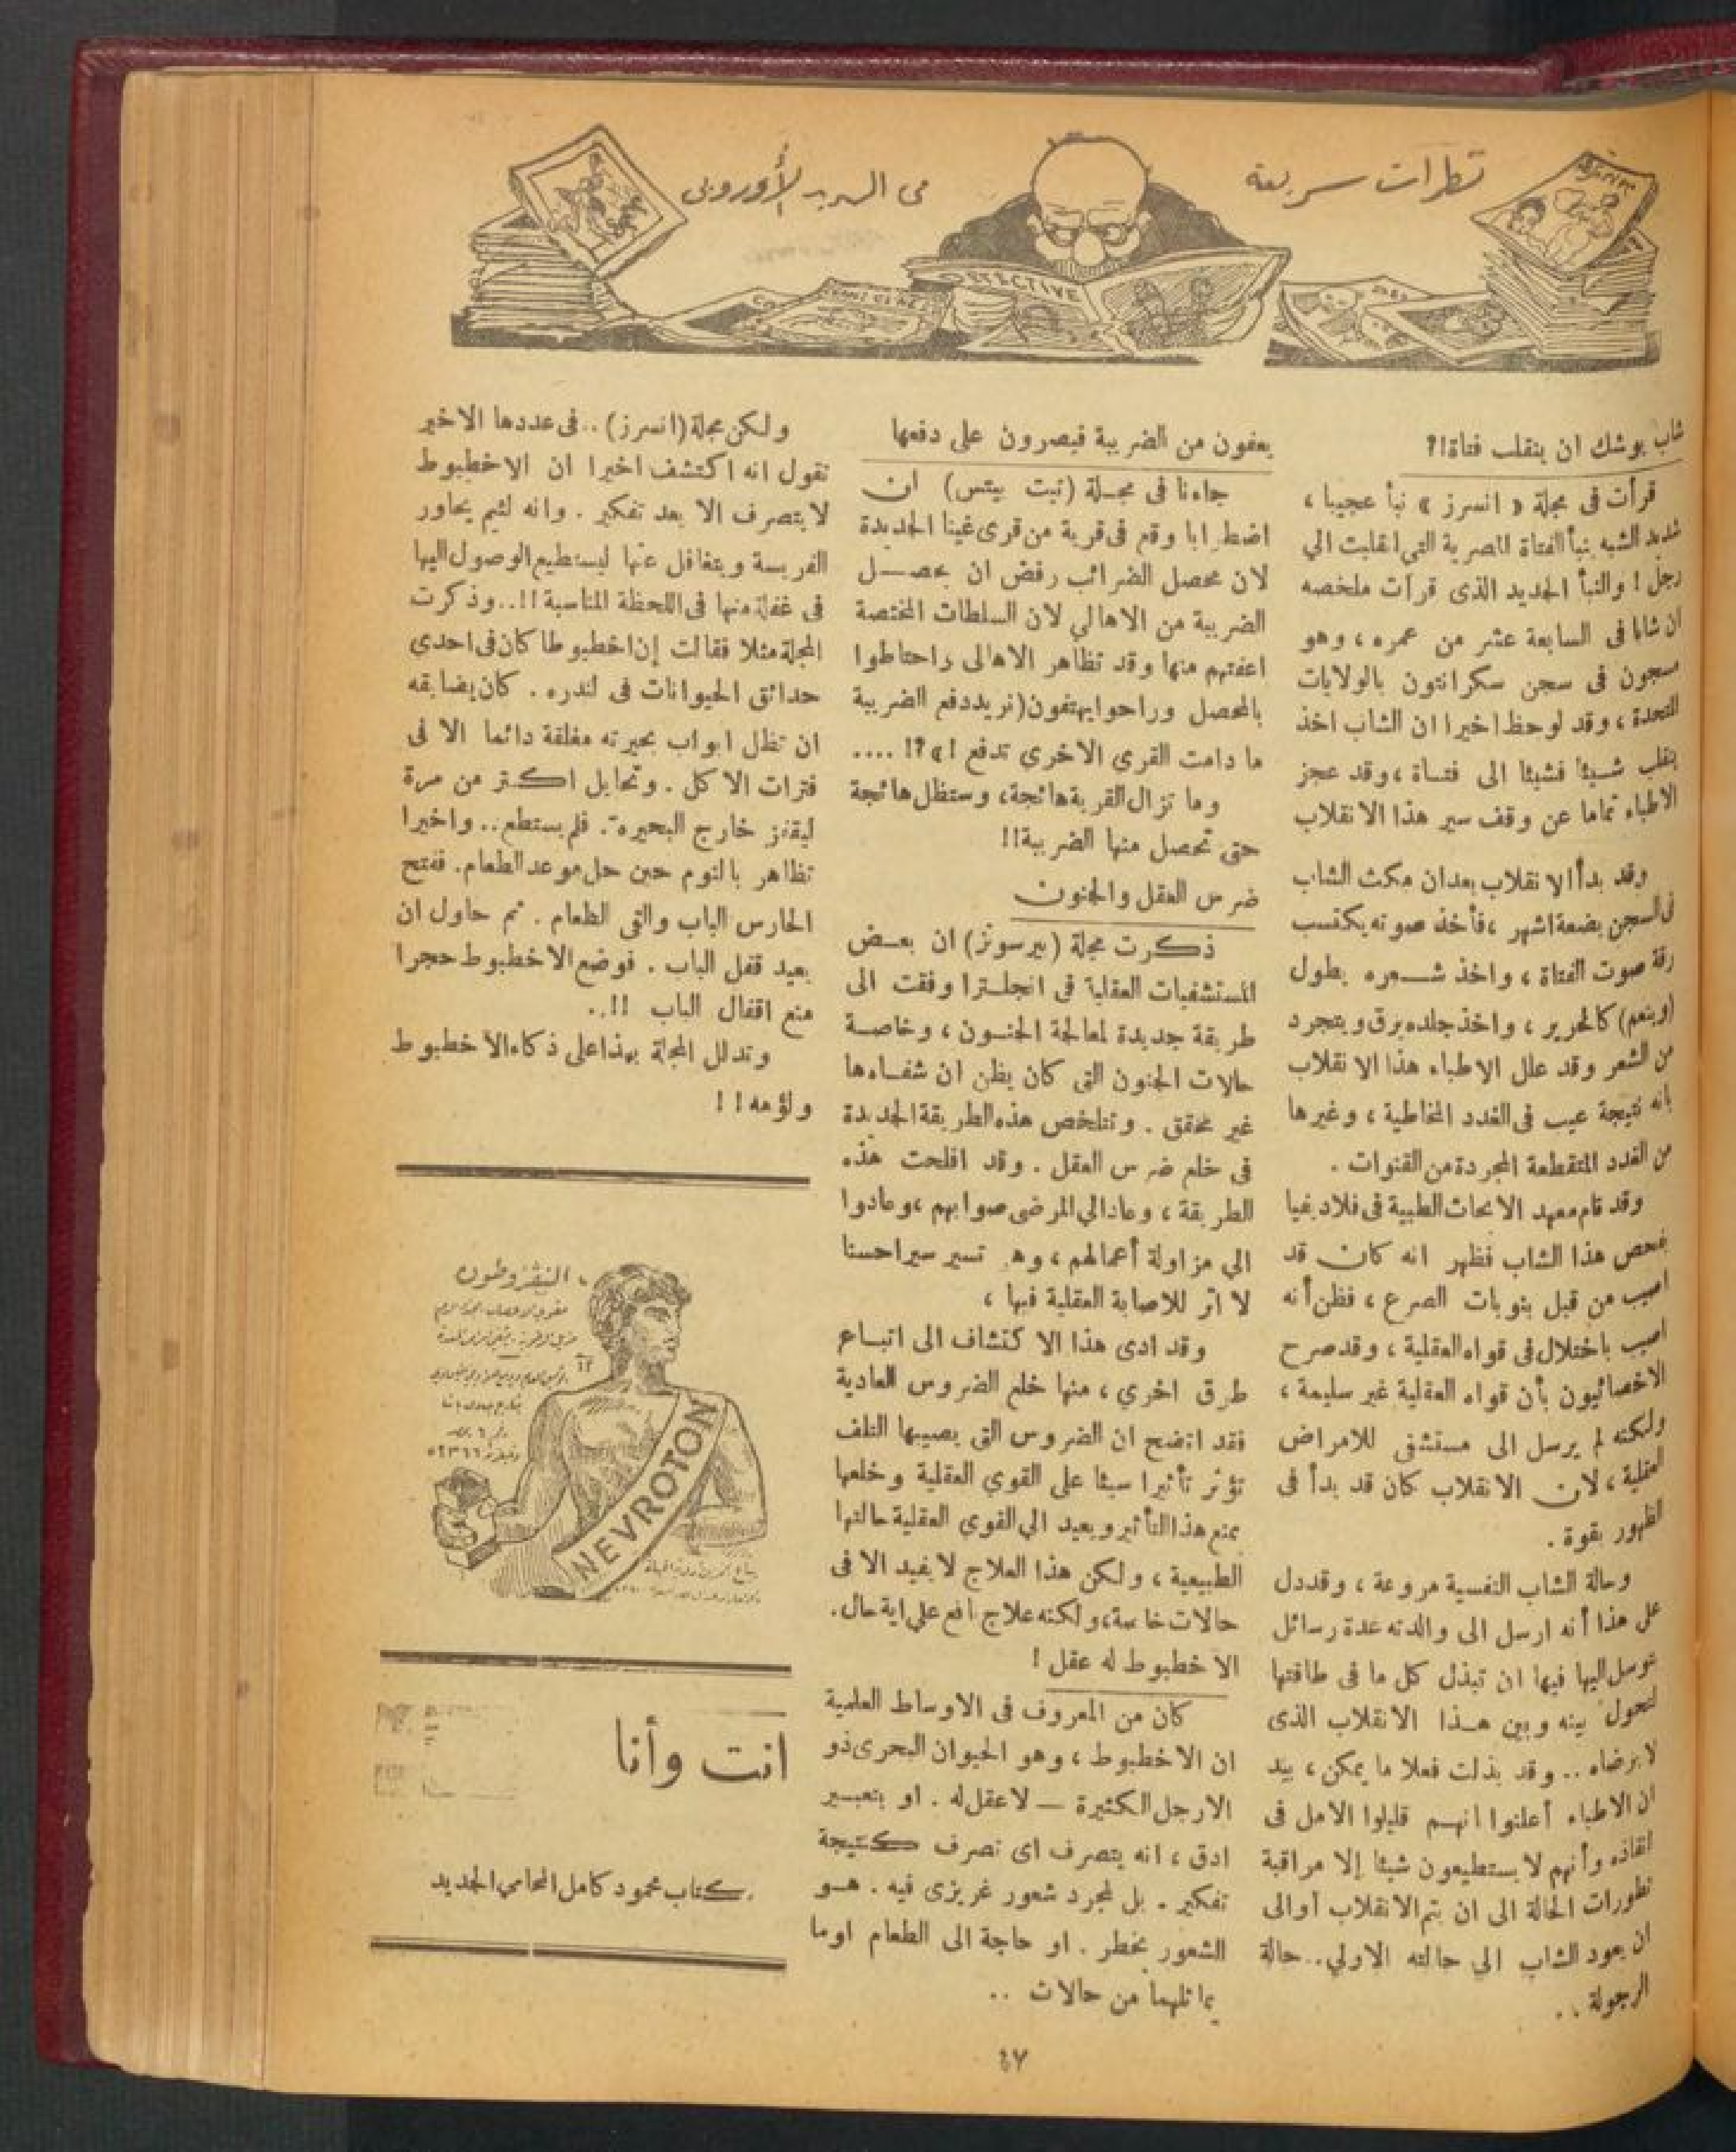 نظرات سريعة
في البريد الأوروبى
شاب يوشك ان ينقلب فتاة!؟
قرأت فى مجلة « انسرز » نبأ عجيبا ،
شديد الشبه بنبأ الفتاة المصرية التى انقلبت الي
رجل ! والنبأ الجديد الذى قرأت ملخصه
ان شابا فى السابعة عشر من عمره ، وهو
مسجون فى سجن سكرانتون بالولايات
المتحدة ، وقد لوحظ اخيرا ان الشاب اخذ
ينقلب شيئا فشيئا الى فتاة ، وقد عجز
الاطباء تماما عن وقف سير هذا الانقلاب
وقد بدأ الانقلاب بعدان مكث الشاب
فى السجن بضعة اشهر ، فأخذ صوته يكتسب
رقة صوت الفتاة ، واخذ شعره يطول
(وينعم) كالحرير ، واخذ جلده يرق ويتجرد
من الشعر وقد علل الاطباء هذا الانقلاب
بانه نتيجة عيب فى الغدد المخاطية ، وغيرها
من الغدد المتقطعة المجردة من القنوات .
وقد قام معهد الابحاث الطبية فى فلادلفيا
بفحص هذا الشاب فظهر انه كان قد
اصيب من قبل بنوبات الصرع ، فظن أنه
اصيب باختلال فى قواه العقلية ، وقد صرح
الاخصائيون بأن قواه العقلية غير سليمة ،
ولكنه لم يرسل الى مستشفى للامراض
العقلية ، لان الانقلاب كان قد بدأ فى
الظهور بقوة .
وحالة الشاب النفسية مروعة ، وقد دل
على هذا أنه ارسل الى والدته عدة رسائل
توسل اليها فيها ان تبذل كل ما فى طاقتها
لتحول بينه وبين هذا الانقلاب الذى
لا يرضاه .. وقد بذلت فعلا ما يمكن ، بيد
ان الاطباء أعلنوا انهم قليلوا الامل فى
انقاذه وأنهم لا يستطيعون شيئا إلا مراقبة
تطورات الحالة الى ان يتم الانقلاب أوالى
ان يعود الشاب الى حالته الاولي .. حالة
الرجولة ..
يعفون من الضريبة فيصرون على دفعها
جاءنا فى مجلة (تيت بيتس) ان
اضطرابا وقع فى قرية من قرى غينا الجديدة
لان محصل الضرائب رفض ان يحصل
الضريبة من الاهالي لان السلطات المختصة
اعفتهم منها وقد تظاهر الاهالى واحتاطوا
بالمحصل وراحوا يهتفون (نريد دفع الضريبة
ما دامت القري الاخري تدفع !» ؟! ....
وما تزال القرية هائجة ، وستظل هائجة
حتى تحصل منها الضريبة!!
ضرس العقل والجنون
ذكرت مجلة (بيرسونز) ان بعض
المستشفيات العقلية فى انجلترا وفقت الى
طريقة جديدة لمعالجة الجنون ، وخاصة
حالات الجنون التى كان يظن ان شفاءها
غير محقق . وتتلخص هذه الطريقة الجديدة
فى خلع ضرس العقل . وقد افلحت هذه
الطريقة ، وعاد الي المرضى صوابهم ، وعادوا
الي مزاولة أعمالهم ، وهى تسير سيراحسنا
لا اثر للاصابة العقلية فيها ،
وقد ادى هذا الاكتشاف الى اتباع
طرق اخري ، منها خلع الضروس العادية
فقد اتضح ان الضروس التى يصيبها التلف
تؤثر تأثيرا سيئا على القوي العقلية وخلعها
يمنع هذا التأثير ويعيد الي القوي العقلية حالتها
الطبيعية ، ولكن هذا العلاج لا يفيد الا فى
حالات خاصة ، ولكنه علاج نافع علي اية حال .
الاخطبوط له عقل !
كان من المعروف فى الاوساط العلمية
ان الاخطبوط ، وهو الحيوان البحرى ذو
الارجل الكثيرة — لا عقل له . او بتعبير
ادق ، انه يتصرف اى تصرف كنتيجة
تفكير . بل لمجرد شعور غريزى فيه . هو
الشعور بخطر . او حاجة الى الطعام اوما
يماثلهما من حالات ..
ولكن مجلة (انسرز) .. فى عددها الاخير
تقول انه اكتشف اخيرا ان الاخطبوط
لا يتصرف الا بعد تفكير . وانه لئيم يحاور
الفريسة ويتغافل عنها ليستطيع الوصول اليها
فى غفلة منها فى اللحظة المناسبة !! .. وذكرت
المجلة مثلا فقالت إن اخطبوطا كان فى احدى
حدائق الحيوانات فى لندره . كان يضايقه
ان تظل ابواب بحيرته مغلقة دائما الا فى
فترات الاكل . وتحايل اكثر من مرة
ليقفز خارج البحيرة . فلم يستطع .. واخيرا
تظاهر بالنوم حين حل موعد الطعام . ففتح
الحارس الباب والتى الطعام . ثم حاول ان
يعيد قفل الباب . فوضع الاخطبوط حجرا
منع اقفال الباب !! ..
وتدلل المجلة بهذا على ذكاء الاخطبوط
ولؤمه ! !
النيفروطون
NEVROTON
انت وأنا
كتاب محمود كامل المحامى الجديد
٤٧